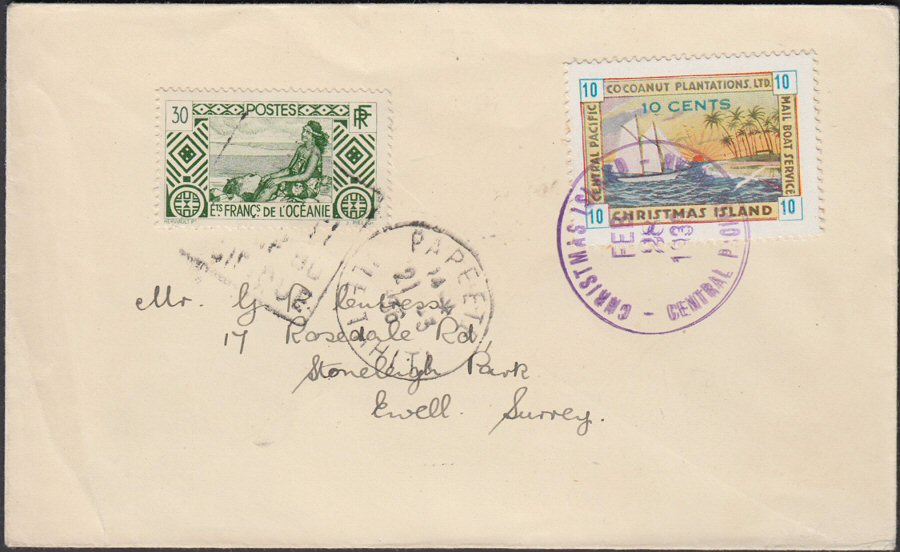 30 POSTES RF
ÉTS FRANÇS DE L'OCÉANIE
10 COCOANUT PLANTATIONS, LTD. 10
10 CENTS
CENTRAL PACIFIC
MAIL BOAT SERVICE
10 CHRISTMAS ISLAND 10
CHRISTMAS
FEB
CENTRAL
PAPEETE
14
21 3
TAHITI
Mr. G.
17 Rosedale Rd,
Stoneleigh Park
Ewell. Surrey.